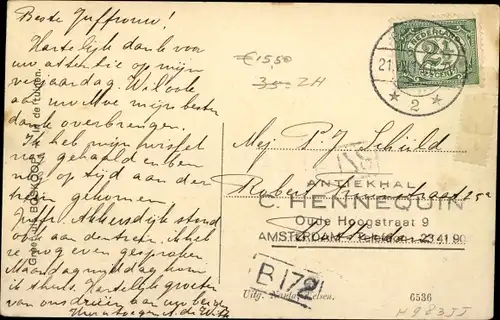 Beste Juffrouw!
Hartelijk dank voor
uw attentie op mijn
verjaardag. Wil ook
aan uw Moe mijn besten
dank overbrengen.
Ik heb mijn
nog gehaald en ben
nog op tijd aan den
trein gekomen.
Juffr. Akkersdijk stond
ook aan den trein. Ik heb
ze nog even gesproken.
Maandagmiddag kom
ik thuis. Hartelijk groeten
van ons drieën aan uw beiden
de Wit
Groet uit BOSKOOP. In de tuinen.
€15,50
35,- ZH
NEDERLAND
2½
21
2
Mej. P J Schild
Robert
ANTIEKHAL
C. HENNEQUIN
Oude Hoogstraat 9
AMSTERDAM - Telefoon 23.41.90
B 172
Uitg.
6536
H983JJ